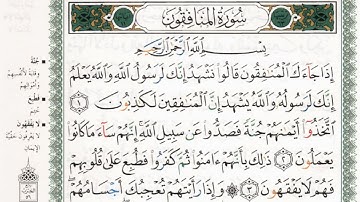 سُورَةُ المُنَافِقُونَ
بِسْمِ ٱللَّهِ ٱلرَّحْمَٰنِ ٱلرَّحِيمِ
إِذَا جَآءَكَ ٱلْمُنَٰفِقُونَ قَالُوا۟ نَشْهَدُ إِنَّكَ لَرَسُولُ ٱللَّهِ وَٱللَّهُ يَعْلَمُ
إِنَّكَ لَرَسُولُهُۥ وَٱللَّهُ يَشْهَدُ إِنَّ ٱلْمُنَٰفِقِينَ لَكَٰذِبُونَ ١
ٱتَّخَذُوٓا۟ أَيْمَٰنَهُمْ جُنَّةً فَصَدُّوا۟ عَن سَبِيلِ ٱللَّهِ إِنَّهُمْ سَآءَ مَا كَانُوا۟
يَعْمَلُونَ ٢ ذَٰلِكَ بِأَنَّهُمْ ءَامَنُوا۟ ثُمَّ كَفَرُوا۟ فَطُبِعَ عَلَىٰ قُلُوبِهِمْ
فَهُمْ لَا يَفْقَهُونَ ٣ وَإِذَا رَأَيْتَهُمْ تُعْجِبُكَ أَجْسَامُهُمْ
جُنَّةً
وقاية لأنفسهم
وأموالهم
فَطُبِعَ
لا يَفْقَهُونَ
الإيمان